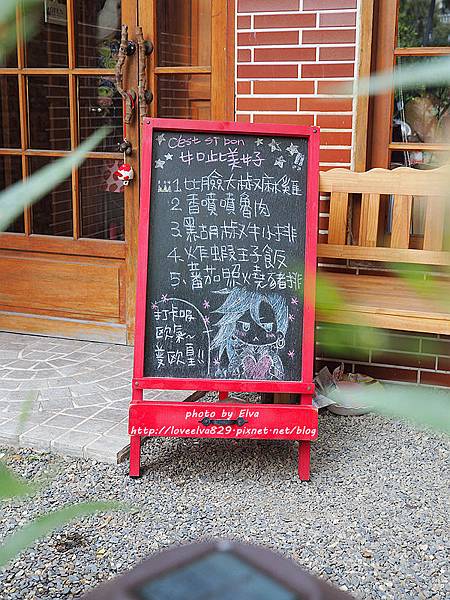 C'est si bon
如此美好
1.比臉大椒麻雞
2.香噴噴魯肉
3.黑胡椒牛小排
4.炸蝦王子飯
5.番茄照燒豬排
打卡吸
歐氣~
變歐皇!!
photo by Elva
http://loveelva829.pixnet.net/blog